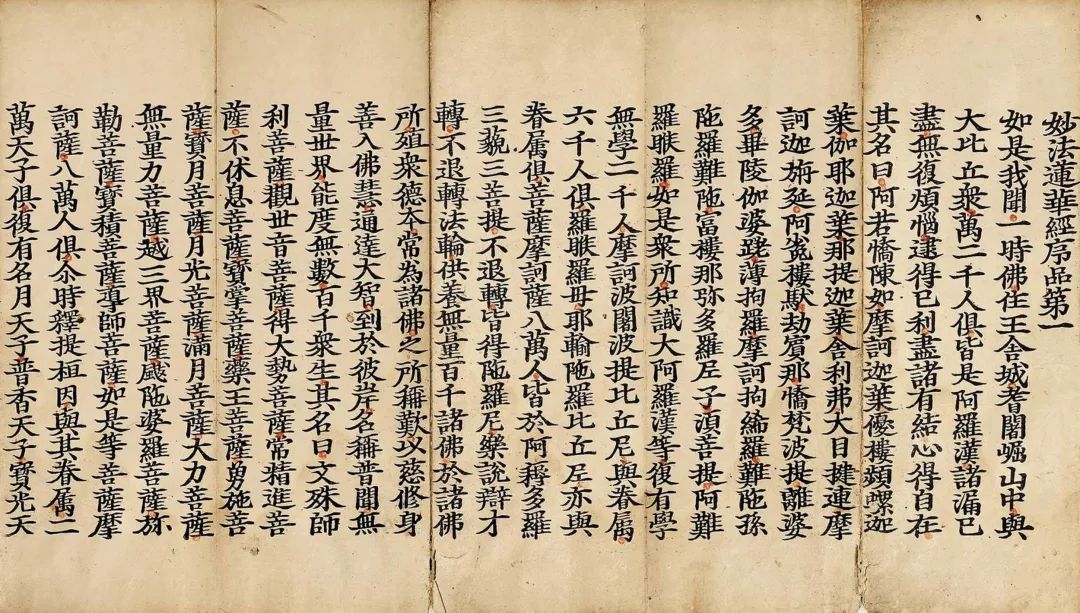 妙法蓮華經序品第一
如是我聞一時佛住王舍城耆闍崛山中與
大比丘眾萬二千人俱皆是阿羅漢諸漏已
盡無復煩惱逮得已利盡諸有結心得自在
其名曰阿若憍陳如摩訶迦葉優樓頻螺迦
葉伽耶迦葉那提迦葉舍利弗大目揵連摩
訶迦旃延阿㝹樓馱劫賓那憍梵波提離婆
多畢陵伽婆蹉薄拘羅摩訶拘絺羅難陀孫
陀羅難陀富樓那弥多羅尼子湏菩提阿難
羅睺羅如是眾所知識大阿羅漢等復有學
無學二千人摩訶波闍波提比丘尼與眷屬
六千人俱羅睺羅母耶輸陀羅比丘尼亦與
眷屬俱菩薩摩訶薩八萬人皆於阿耨多羅
三藐三菩提不退轉皆得陀羅尼樂說辯才
轉不退轉法輪供養無量百千諸佛於諸佛
所殖眾德本常為諸佛之所稱歎以慈修身
善入佛慧通達大智到於彼岸名稱普聞無
量世界能度無數百千眾生其名曰文殊師
利菩薩觀世音菩薩得大勢菩薩常精進菩
薩不休息菩薩寶掌菩薩藥王菩薩勇施菩
薩寶月菩薩月光菩薩滿月菩薩大力菩薩
無量力菩薩越三界菩薩颰陀婆羅菩薩弥
勒菩薩寶積菩薩導師菩薩如是等菩薩摩
訶薩八萬人俱尒時釋提桓因與其眷屬二
萬天子俱復有名月天子普香天子寶光天